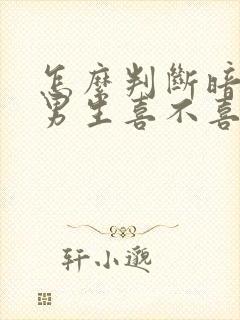 怎麼判斷暗
男生喜不喜
轩小邈